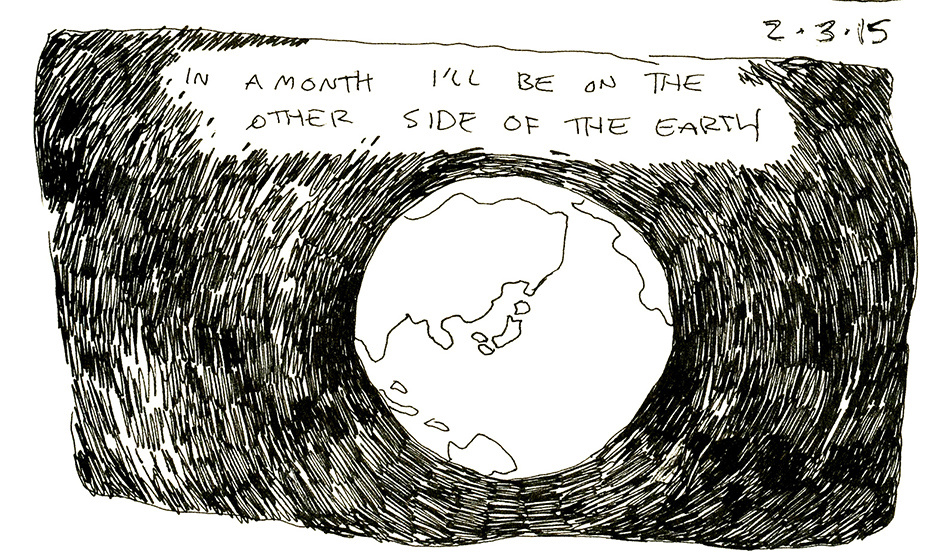 2.3.15
IN A MONTH I'LL BE ON THE
OTHER SIDE OF THE EARTH